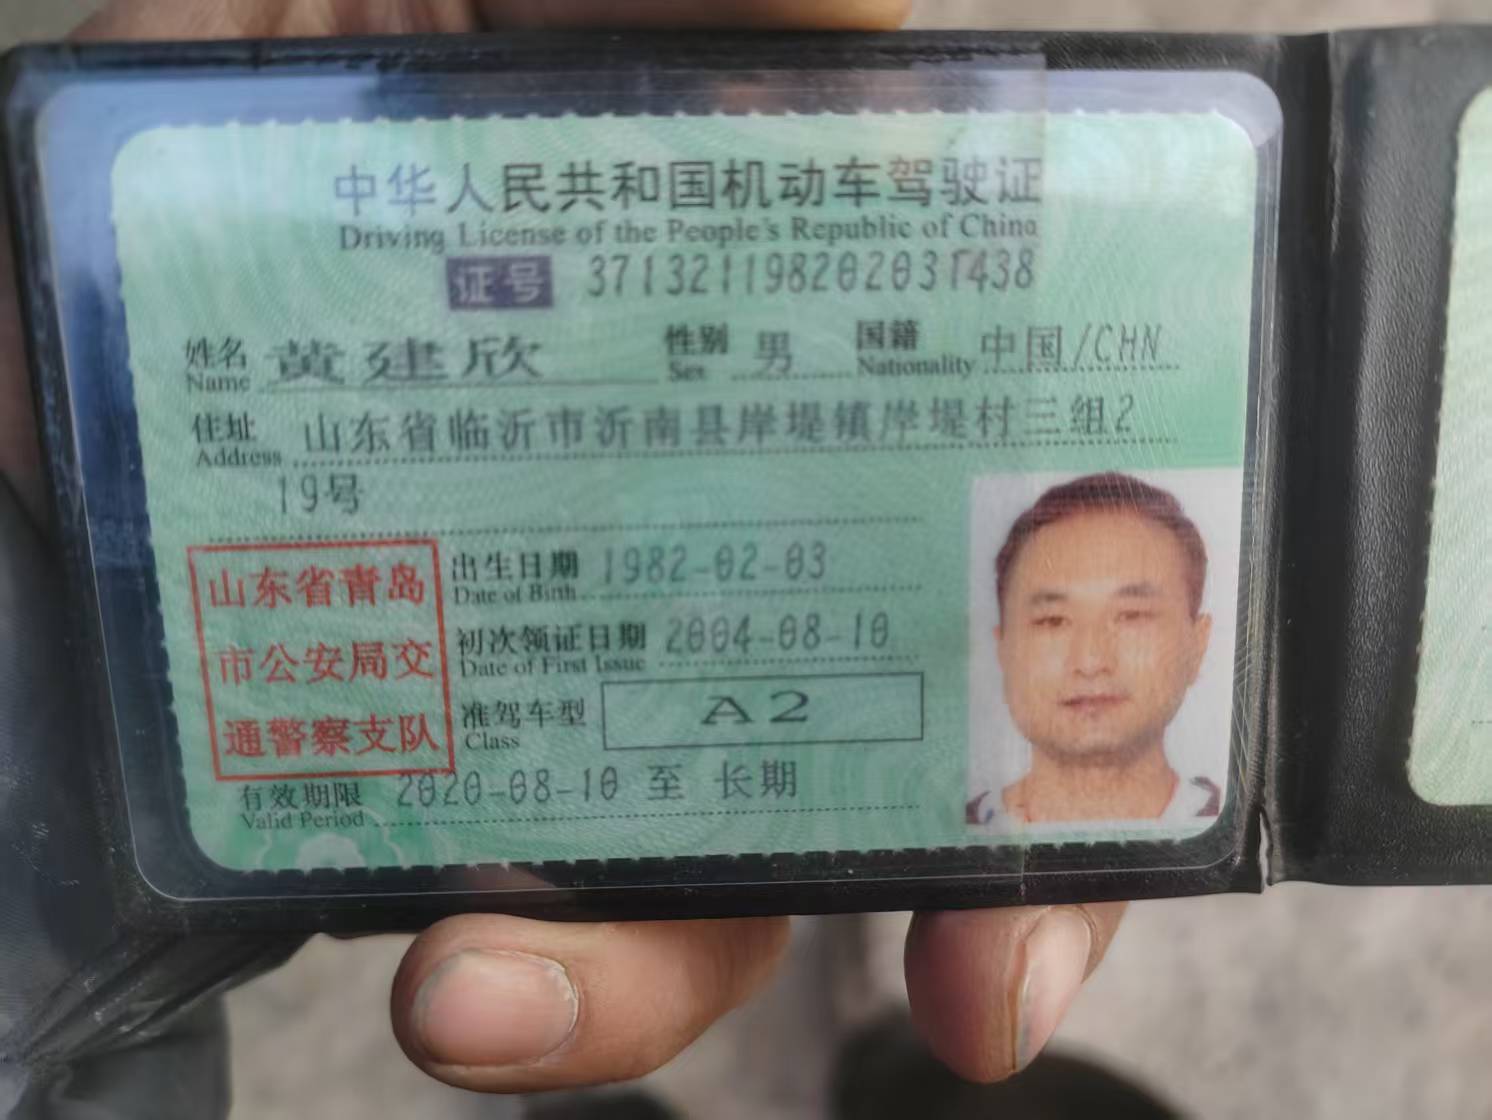 中华人民共和国机动车驾驶证
Driving License of the People's Republic of China
证号 371321198202031438
姓名 黄建欣 性别 男 国籍 中国/CHN
Name Sex Nationality
住址 山东省临沂市沂南县岸堤镇岸堤村三组2
Address
19号
山东省青岛
市公安局交
通警察支队
出生日期 1982-02-03
Date of Birth
初次领证日期 2004-08-10
Date of First Issue
准驾车型 A2
Class
有效期限 2020-08-10 至 长期
Valid Period